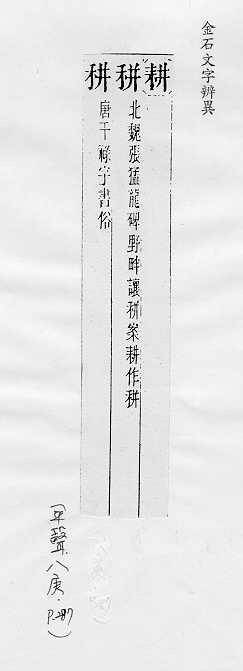 金石文字辨異
耕
𥞩 北魏張猛龍碑野畔讓𥞩案耕作𥞩
𥞩 唐干祿字書俗
(平聲.八庚.P.287)